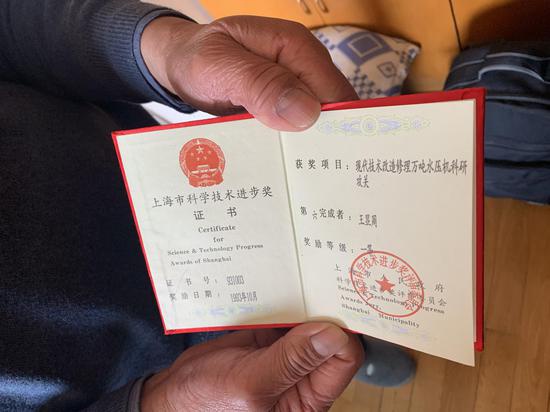 上海市科学技术进步奖
证 书
Certificate
for
Science & Technology Progress
Awards of Shanghai
证 书 号: 931003
奖励日期: 1993年10月
获奖项目: 现代技术改造修理万吨水压机科研
攻关
第六完成者:
奖励等级: 一等
上 海 市 人 民 政 府
科学技术进步奖评审委员会
Science & Technology Progress
Awards Jury,
Shanghai Municipality